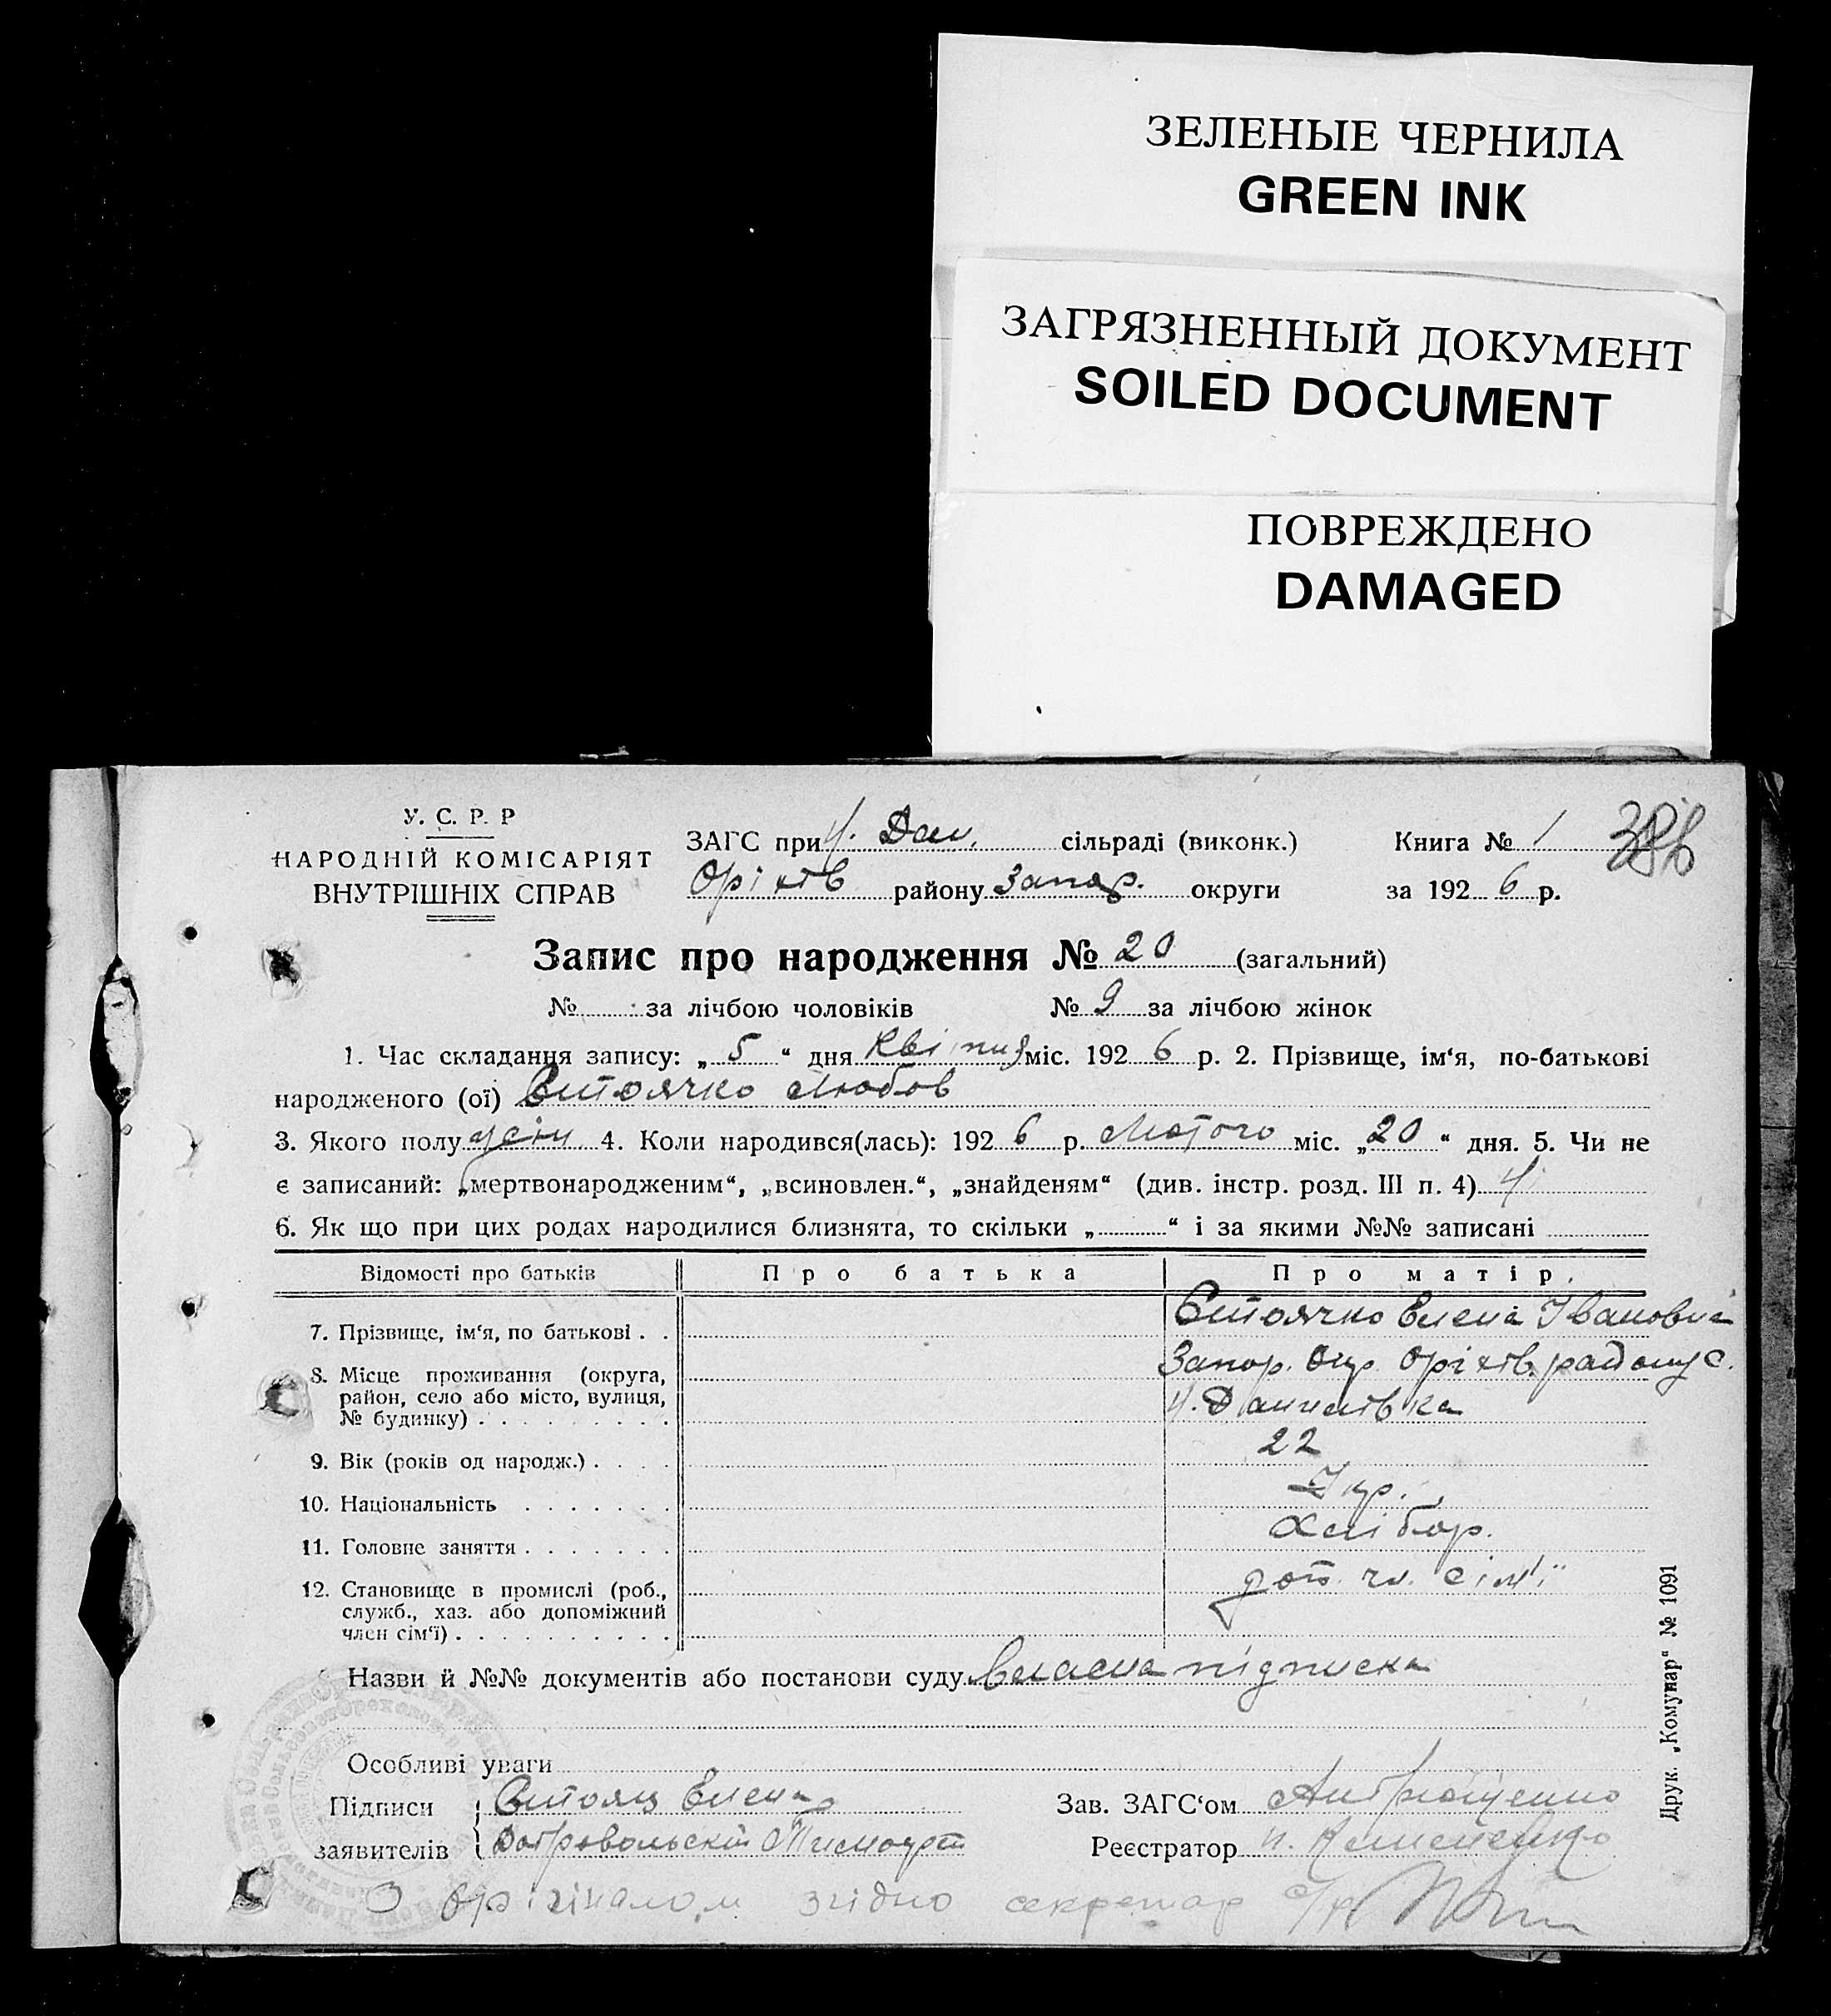 ЗЕЛЕНЫЕ ЧЕРНИЛА
GREEN INK
ЗАГРЯЗНЕННЫЙ ДОКУМЕНТ
SOILED DOCUMENT
ПОВРЕЖДЕНО
DAMAGED
У. С. Р. Р
НАРОДНІЙ КОМІСАРІЯТ
ВНУТРІШНІХ СПРАВ
ЗАГС при Н. Дан. сільраді (виконк.)
Оріхів району Запор. округи
Книга № 1
за 192 6 р.
Запис про народження № 20 (загальний)
№ за лічбою чоловіків № 9 за лічбою жінок
1. Час складання запису: „ 5 “ дня Квітня міс. 192 6 р. 2. Прізвище, ім‘я, по-батькові
народженого (ої) Стоячко Любов
3. Якого полу жін 4. Коли народився(лась): 192 6 р. Лютого міс. „ 20 “ дня. 5. Чи не
є записаний: „мертвонародженим“, „всиновлен.“, „знайденям“ (див. інстр. розд. III п. 4)
6. Як що при цих родах народилися близнята, то скільки „ “ і за якими №№ записані
Відомості про батьків Про батька Про матір.
7. Прізвище, ім‘я, по батькові . . Стоячко Елена Івановна
8. Місце проживання (округа, Запор. Окр. Оріхів. району с.
район, село або місто, вулиця, Н. Данилівка
№ будинку)
9. Вік (років од народж.) 22
10. Національність Укр.
11. Головне заняття Хлібор.
12. Становище в промислі (роб., доп. чл. сім'ї
служб., хаз. або допоміжний
член сім‘ї)
Назви й №№ документів або постанови суду Власна підписка
Особливі уваги
Підписи Елена
заявителів Добровольский Тимофей
Зав. ЗАГС‘ом
Реєстратор
З орігіналом згідно секретар с/р
Друк. „Комунар“ № 1091